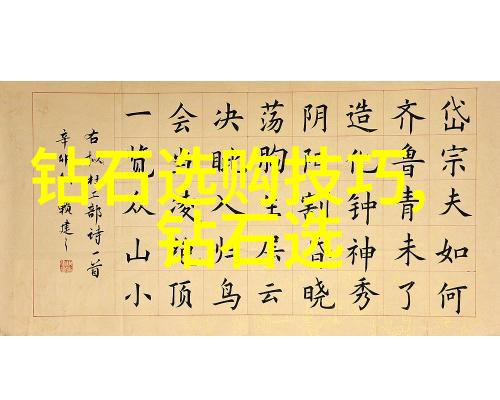 钻石选购技巧,
钻石选
岱宗夫如何
齐鲁青未了
造化钟神秀
阴阳割昏晓
荡胸生层云
决眦入归鸟
会当凌绝顶
一览众山小
右杜工部诗一首
辛卯